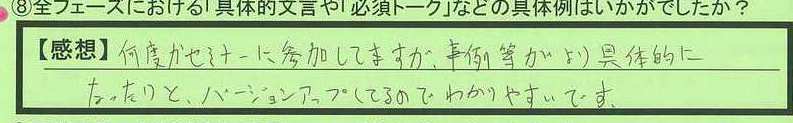 ⑧全フェーズにおける「具体的文言や「必須トーク」などの具体例はいかがでしたか？
【感想】何度かセミナーに参加してますが、事例等がより具体的に
なったりと、バージョンアップしてるのでわかりやすいです。